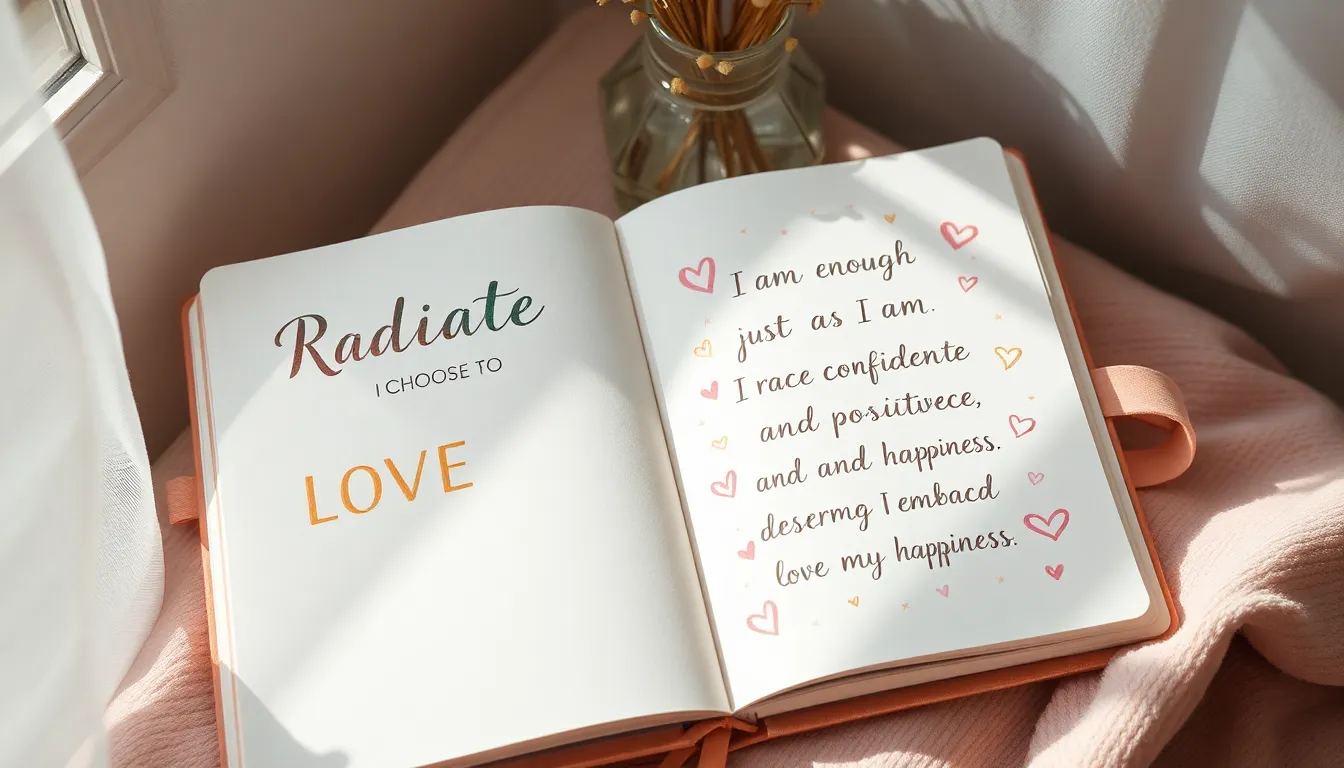 Radiate
I CHOOSE TO
LOVE
I am enough
just as I am.
I race confidente
and positivece,
and and happiness.
desermg I embacd
love my happiness.